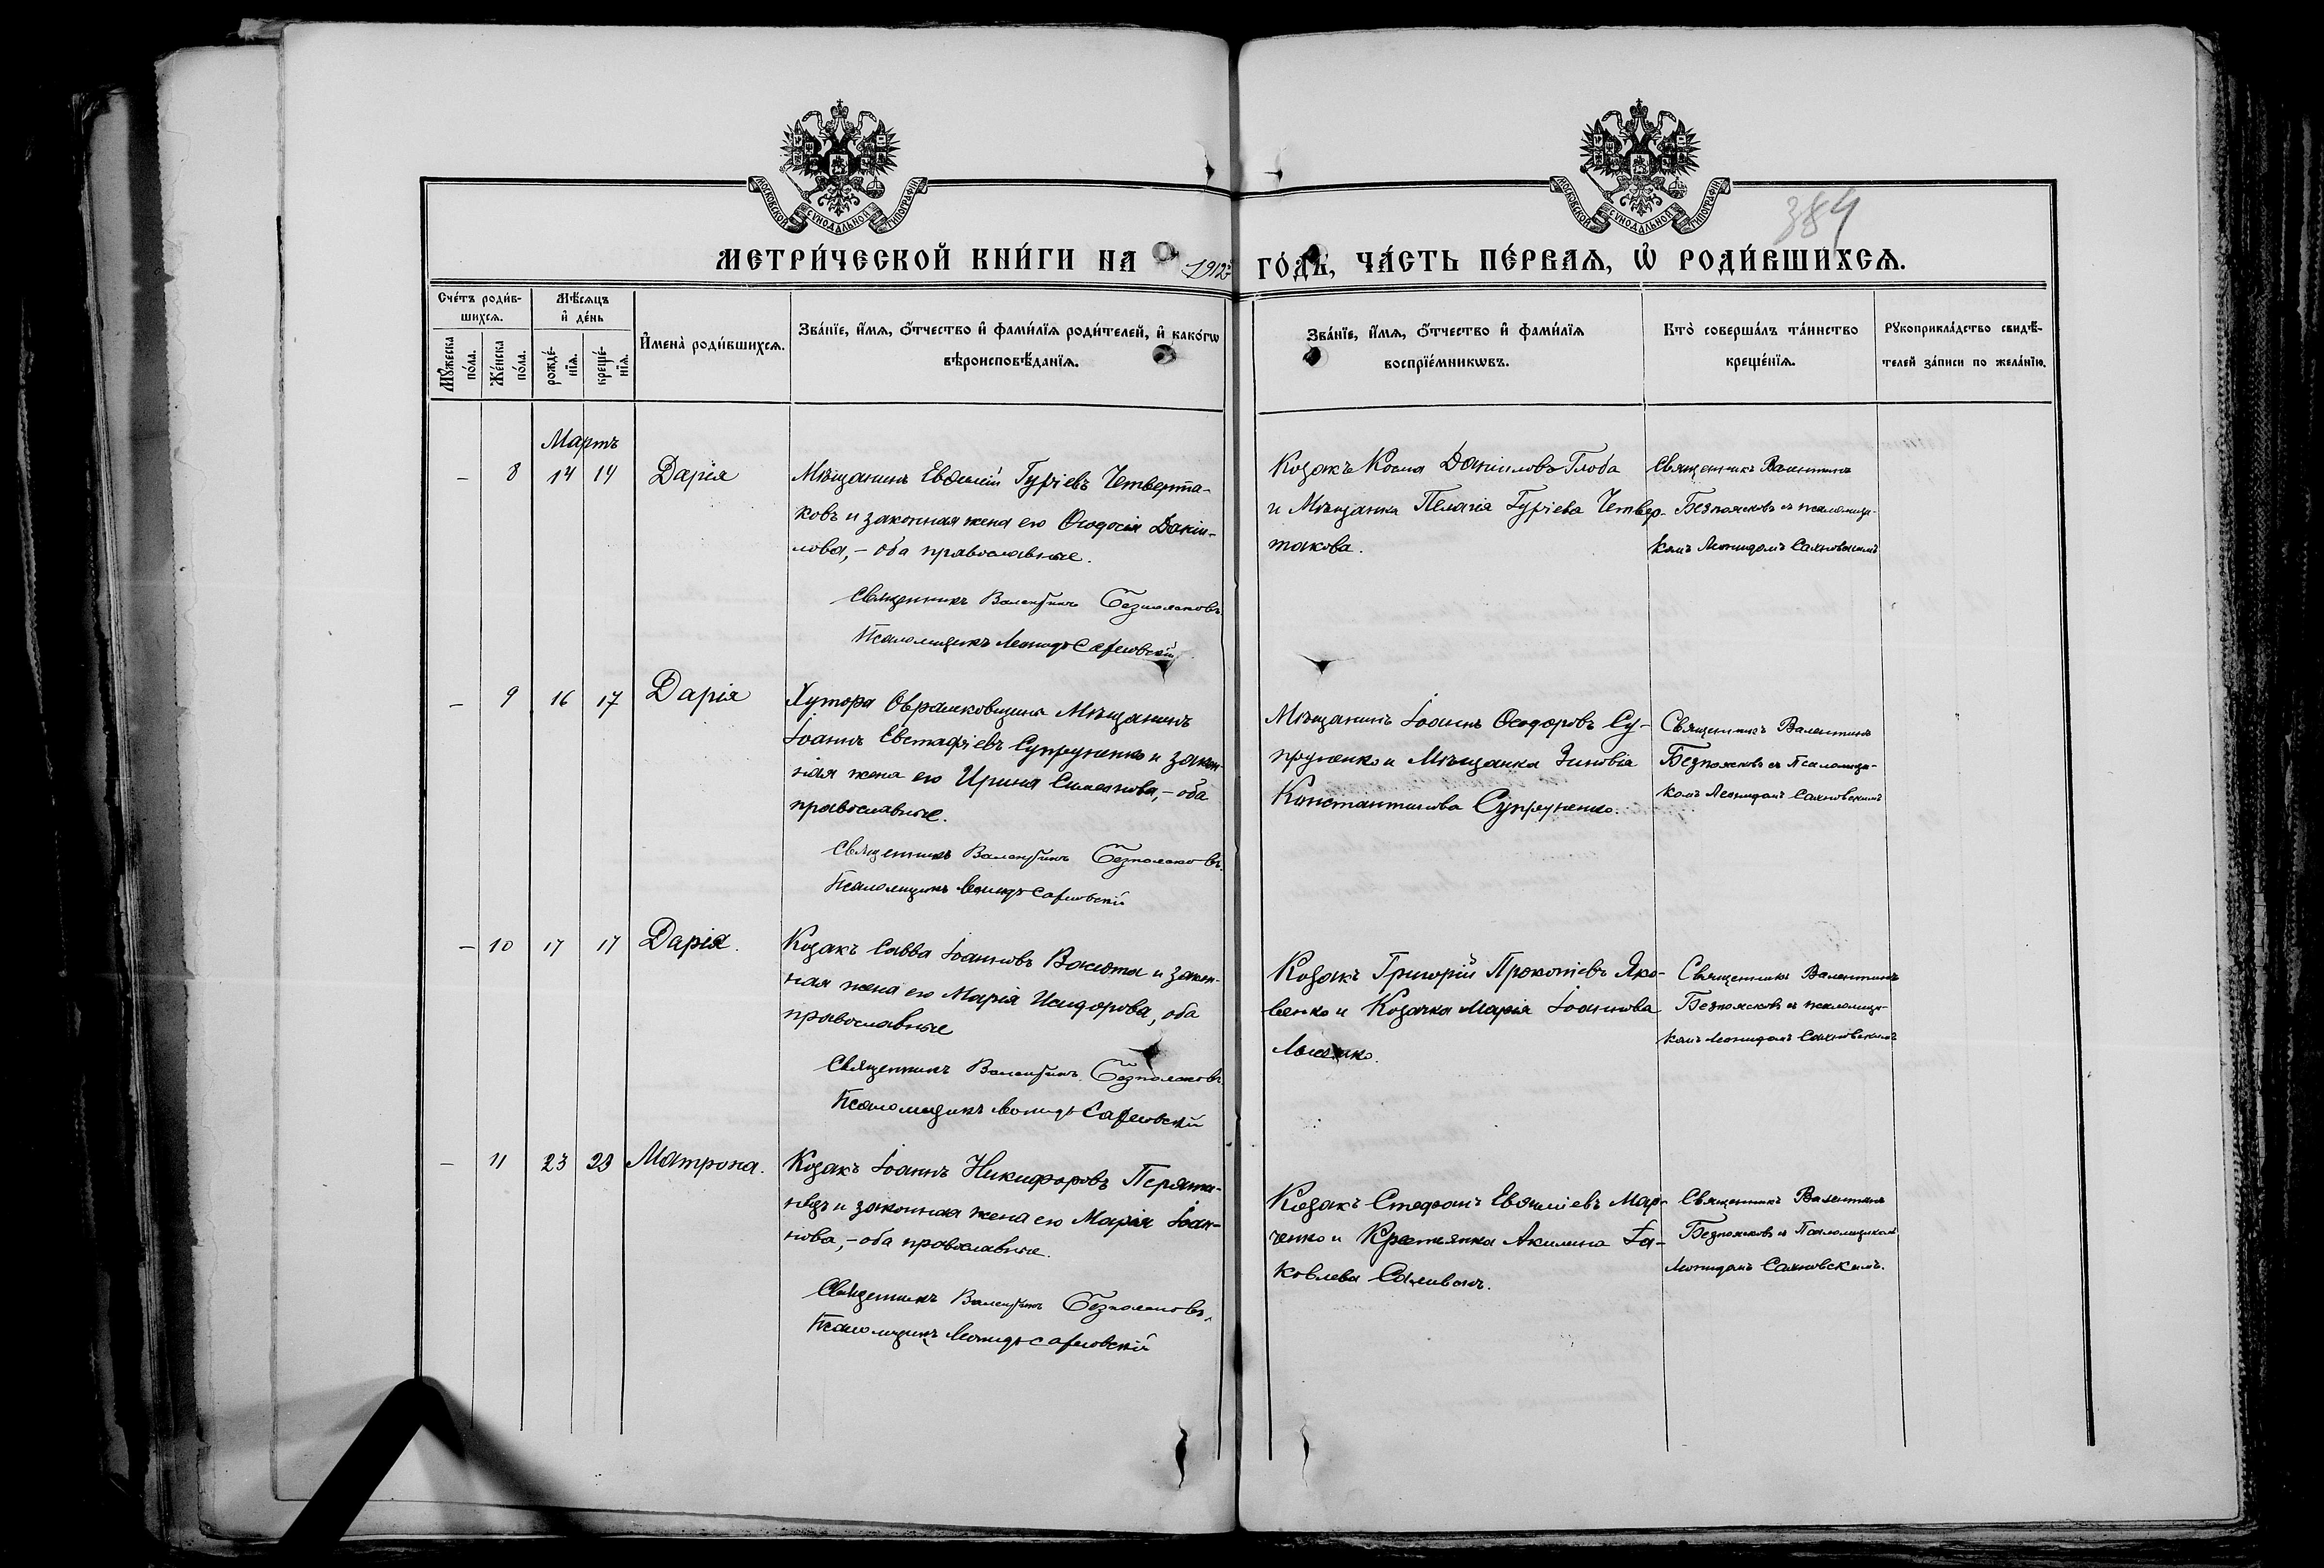 384
МОСКОВСКОЙ СѴНОДАЛЬНОЙ ТИПОГРАФІИ
МОСКОВСКОЙ СѴНОДАЛЬНОЙ ТИПОГРАФІИ
МЕТРИ́ЧЕСКОЙ КНИ́ГИ НА 1912 ГО́ДЪ, ЧА́СТЬ ПЕ́РВАѦ, Ѡ҆ РОДИ́ВШИХСѦ.
Сче́тъ роди́в-
шихсѧ.
Мꙋ́жеска по́ла.
Же́нска по́ла.
Мѣ́сѧцъ
и҆ де́нь
рожде́-
нїѧ.
креще́-
нїѧ.
И҆мена̀ роди́вшихсѧ.
Зва́нїе, и҆́мѧ, ѻ҆́тчество и҆ фами́лїѧ роди́телей, и҆ како́гѡ
вѣроисповѣ́данїѧ.
Зва́нїе, и҆́мѧ, ѻ҆́тчество и҆ фами́лїѧ
воспрїе́мникѡвъ.
Кто̀ соверша́лъ та́инство
креще́нїѧ.
Рꙋкоприкла́дство свидѣ́-
телей за́писи по жела́нїю.
Мартъ
— 8 14 14 Дарія
Мѣщанинъ Евфимій Гуріевъ Четверта-
ковъ и законная жена его Ѳеодосія Дани-
лова, – оба православные.
Священникъ Валентинъ Безпоясковъ
Псаломщикъ Леонидъ Сахновскій
Козакъ Косма Даніиловъ Глоба
и Мѣщанка Пелагія Гуріева Четвер-
такова.
Священникъ Валентинъ
Безпоясковъ съ псаломщи-
комъ Леонидомъ Сахновскимъ
— 9 16 17 Дарія
Хутора Овраменковщины Мѣщанинъ
Іоаннъ Евстафіевъ Супруненко и закон-
ная жена его Ирина Симеонова, – оба
православные.
Священникъ Валентинъ Безпоясковъ
Псаломщикъ Леонидъ Сахновскій
Мѣщанинъ Іоаннъ Ѳеодоровъ Су-
пруненко и Мѣщанка Зиновія
Константинова Супруненко.
Священникъ Валентинъ
Безпоясковъ съ Псаломщи-
комъ Леонидомъ Сахновскимъ
— 10 17 17 Дарія.
Козакъ Савва Іоанновъ Васюта и закон-
ная жена его Марія Исидорова, оба
православные
Священникъ Валентинъ Безпоясковъ
Псаломщикъ Леонидъ Сахновскій
Козакъ Григорій Прокопіевъ Яко-
венко и Козачка Марія Іоаннова
Священникъ Валентинъ
Безпоясковъ съ псаломщи-
комъ Леонидомъ Сахновскимъ
— 11 23 23 Матрона.
Козакъ Іоаннъ Никифоровъ Перяти-
нецъ и законная жена его Марія Іоан-
нова, – оба православные.
Священникъ Валентинъ Безпоясковъ
Псаломщикъ Леонидъ Сахновскій
Козакъ Стефанъ Евфиміевъ Мар-
ченко и Крестьянка Акилина Іа-
ковлева Саливонъ.
Священникъ Валентинъ
Безпоясковъ съ Псаломщикомъ
Леонидомъ Сахновскимъ.